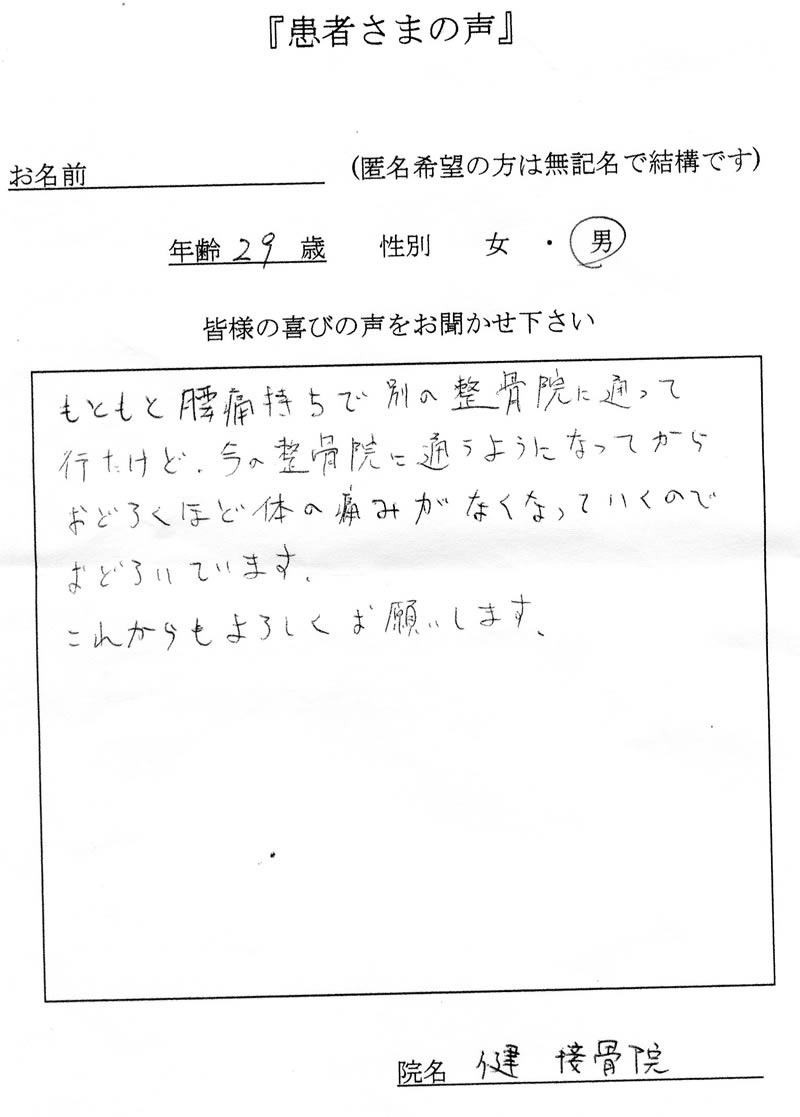 『患者さまの声』
お名前 (匿名希望の方は無記名で結構です)
年齢 29 歳 性別 女 ・ 男
皆様の喜びの声をお聞かせ下さい
もともと腰痛持ちで別の整骨院に通って
行たけど、今の整骨院に通うようになってから
おどろくほど体の痛みがなくなっていくので
おどろいています。
これからもよろしくお願いします。
院名 健 接骨院